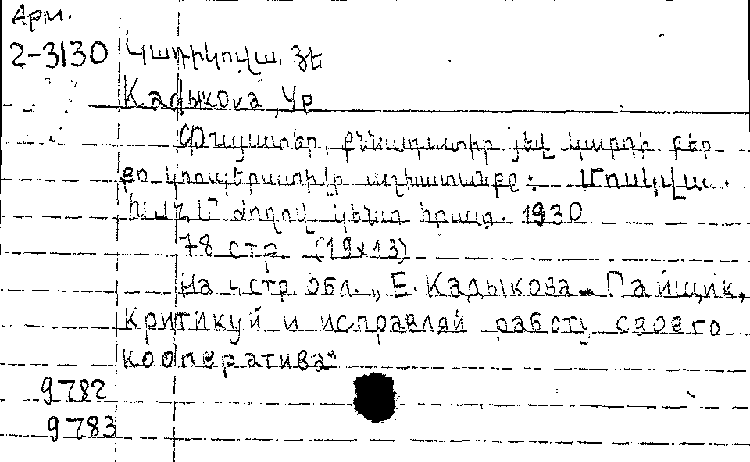 Арм.
2-3130 Կադիկովա, Յե
Кадыкова, Ур
Փայատեր, քննադատիր յեվ կարգի բեր
քո կոոպերատիվի աշխատանքը: Մոսկվա.
ԽՍՀՄ ժողով կենտ հրատ. 1930
78 стр. (19x13)
На 4 стр. обл. „Е. Кадыкова – Пайщик,
критикуй и исправляй работу своего
кооператива“
9782
9783